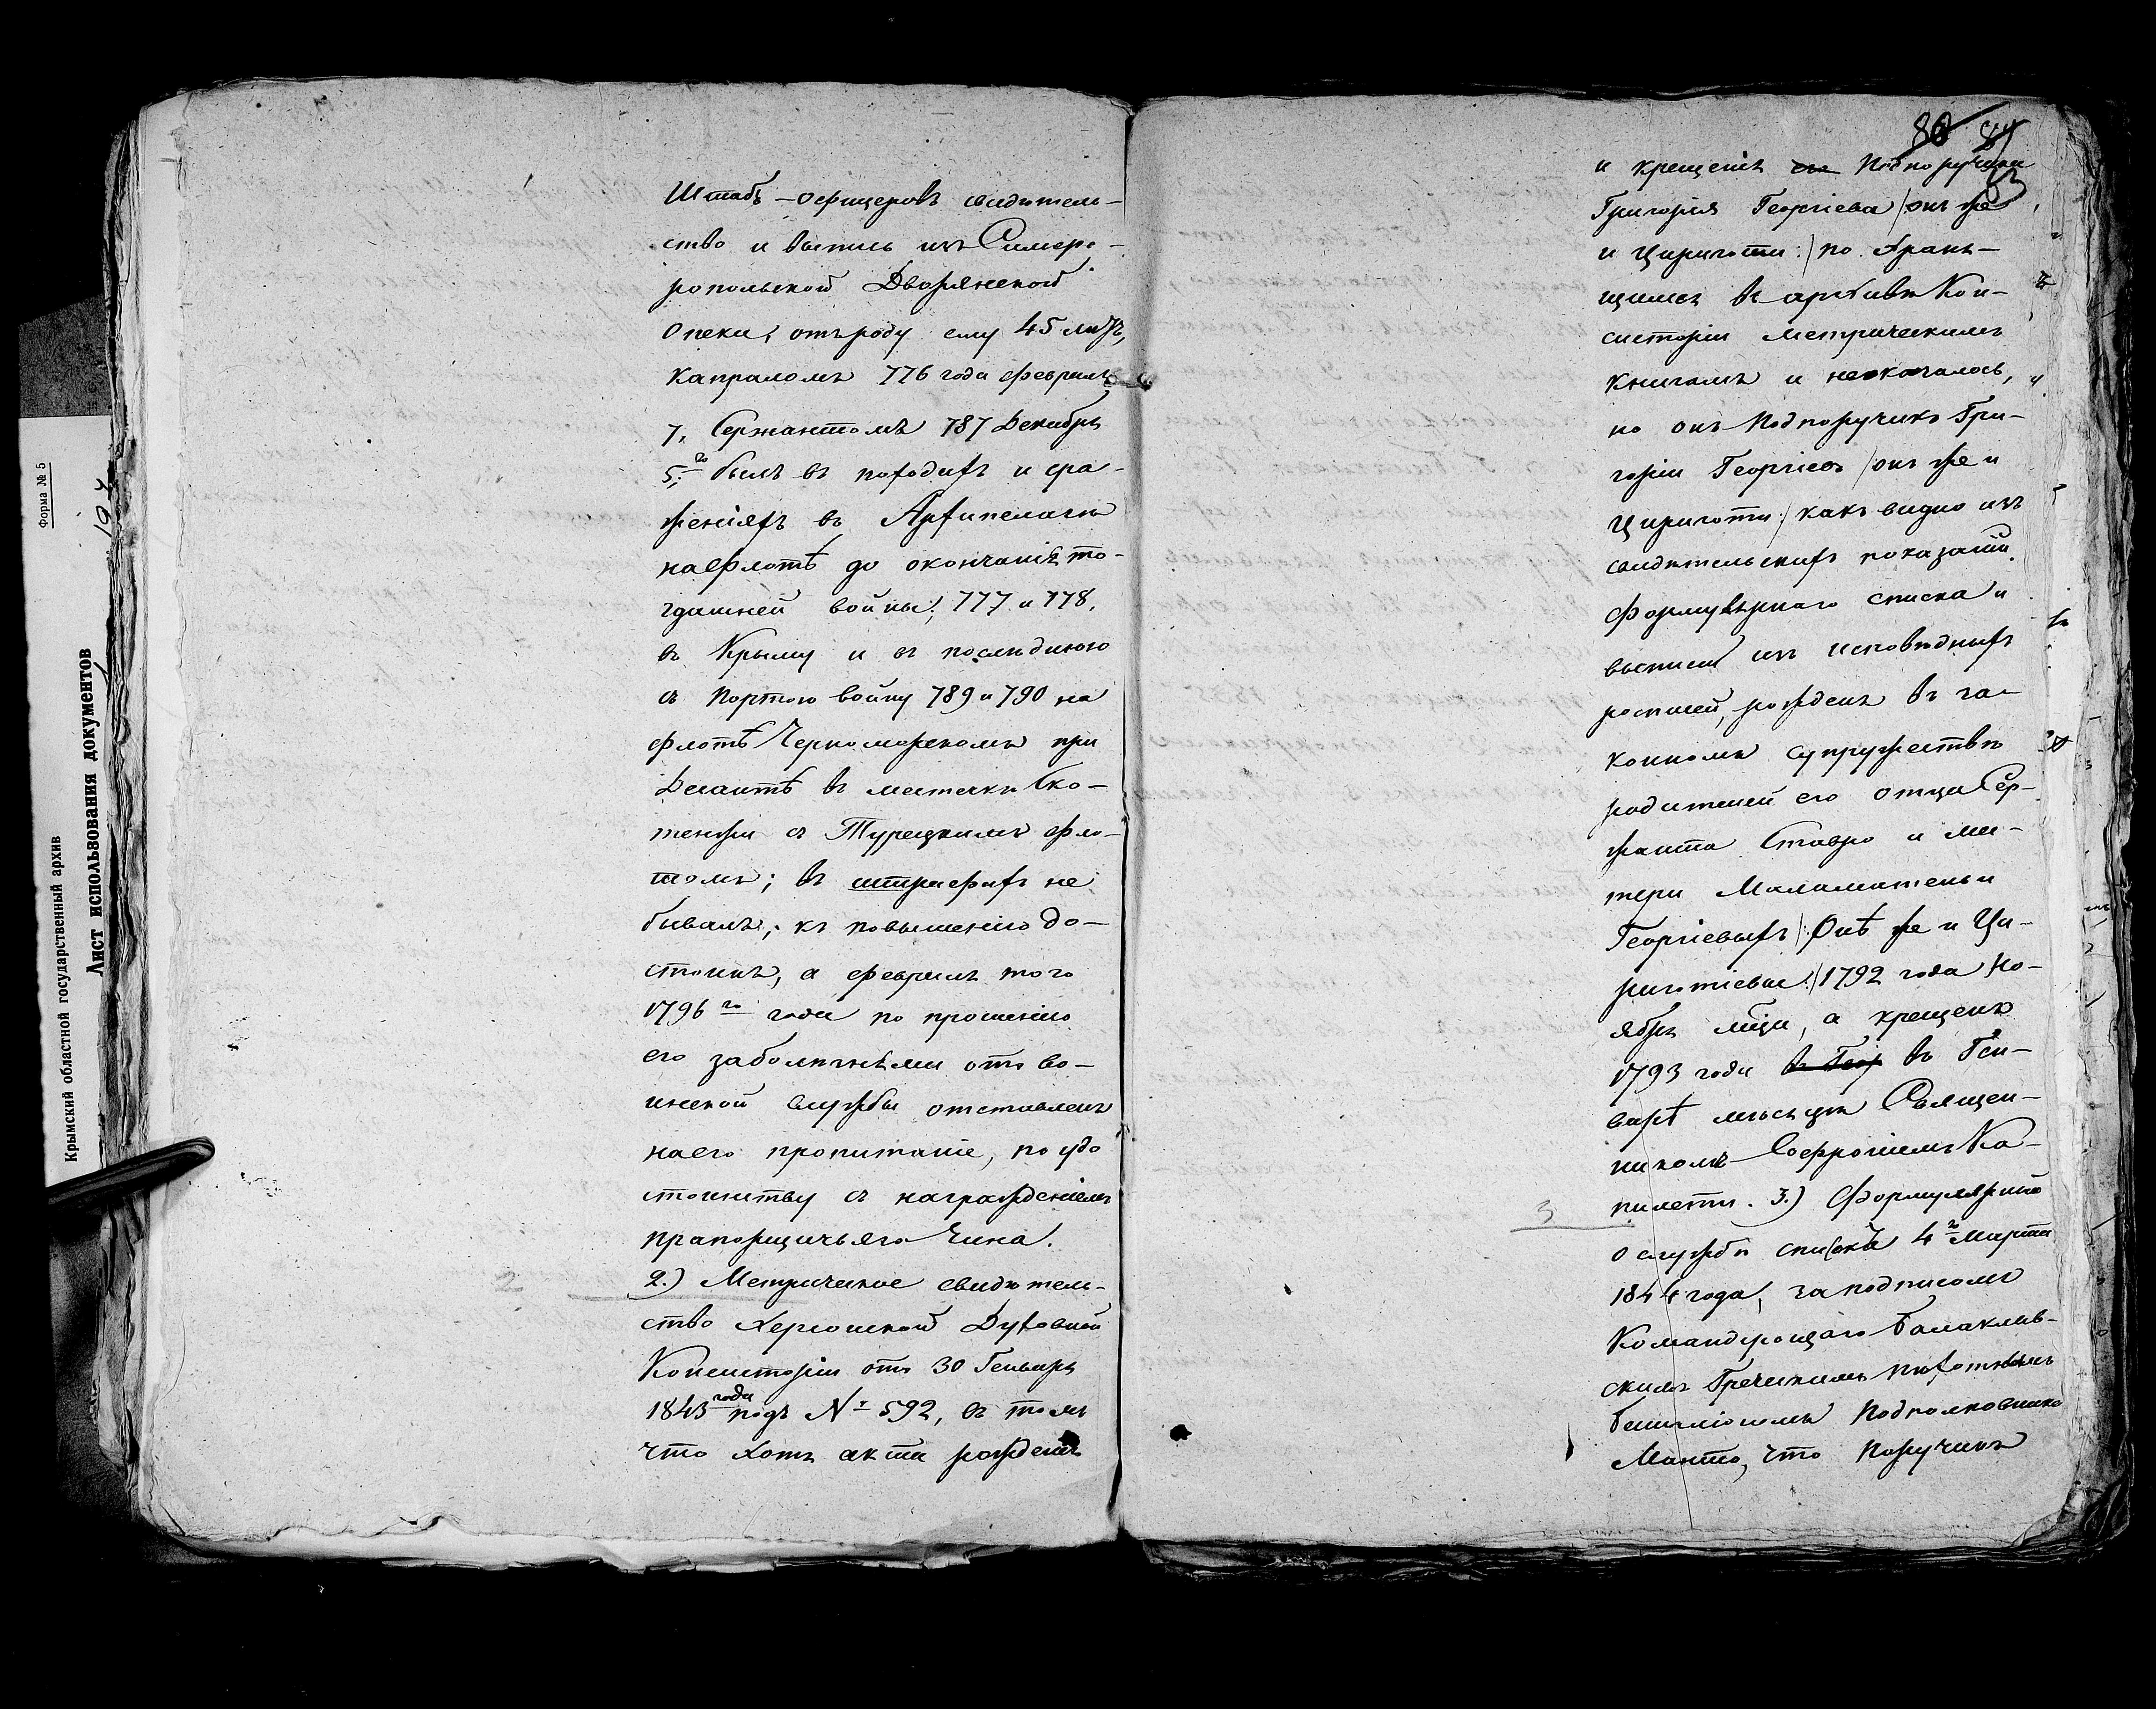 Форма № 5
Крымский областной государственный архив
Лист использования документов
Штабъ-офицеровъ свидѣтель-
ство и выпись изъ Симфе-
ропольской Дворянской
Опеки, отъ роду ему 45 лѣтъ,
Капраломъ 776 года февраля
7, Сержантомъ 787 Декабря
5го былъ въ походахъ и сра-
женіяхъ въ Архипелагѣ
на флотѣ до окончанія то-
гдашней войны; 777 и 778,
въ Крыму и въ послѣднюю
съ Портою войну 789 и 790 на
флотѣ Черноморскомъ при
Десантѣ въ местечки
съ Турецкимъ фло-
томъ; въ штрафахъ не
бывалъ; къ повышенію до-
стоинъ, а февраля того
1796го года по прошенію
его за болѣзнями отъ во-
инской службы отставленъ
на его пропитаніе, по удо
стоинству съ награжденіемъ
прапорщичьяго Чина.
2
2.) Метрическое свидѣтель-
ство Херсонской Духовной
Консисторіи отъ 30 Генваря
1843 года подъ № 592, въ томъ
что хотя акта рожденія
80 84
83
и крещенія Подпоручика
Григорія Георгіева /онъ же
и Цириготи:/ по хранъ-
щимся въ архивѣ Кон-
систоріи метрическимъ
книгамъ и неоказалось,
но онъ Подпоручикъ Гри-
горій Георгіевъ /онъ же и
Цириготи:/ какъ видно изъ
свидѣтельскихъ показаній
формулярнаго списка и
выписей изъ исповѣдныхъ
росписей, рожденъ въ за-
конномъ супружествѣ
родителей его отца Сер-
жанта Ставро и ма-
тери Маламатеньи
Георгіевыхъ /Онѣ же и Ци-
риготіевы:/ 1792 года Но-
ября мца, а крещенъ
1793 года въ Геор въ Ген-
варѣ мѣсяцѣ Священ-
никомъ Софроніемъ Ка-
пилетти. 3.) Формулярный
3
о службѣ списокъ 4го Марта
1844 года, за подписомъ
Командующаго Балаклав-
скимъ Греческимъ пѣхотнымъ
Баталіономъ Подполковника
Манто, что Поручикъ